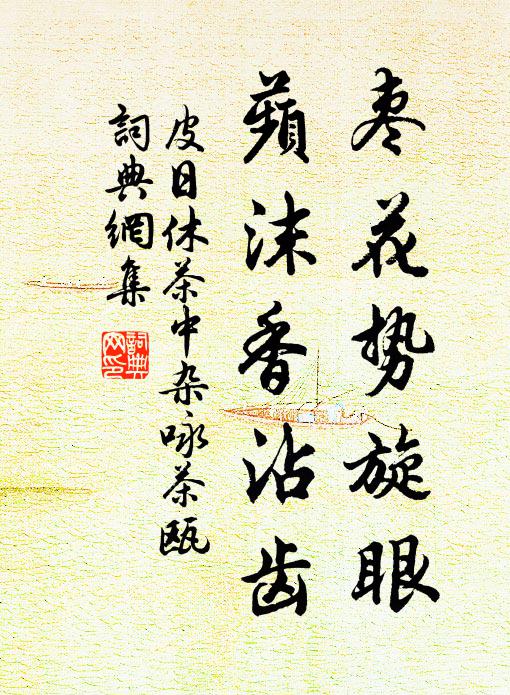 枣花势旋眼
蘋沫香沾齿
皮日休茶中杂咏茶瓯
詞典網集
詞典網印